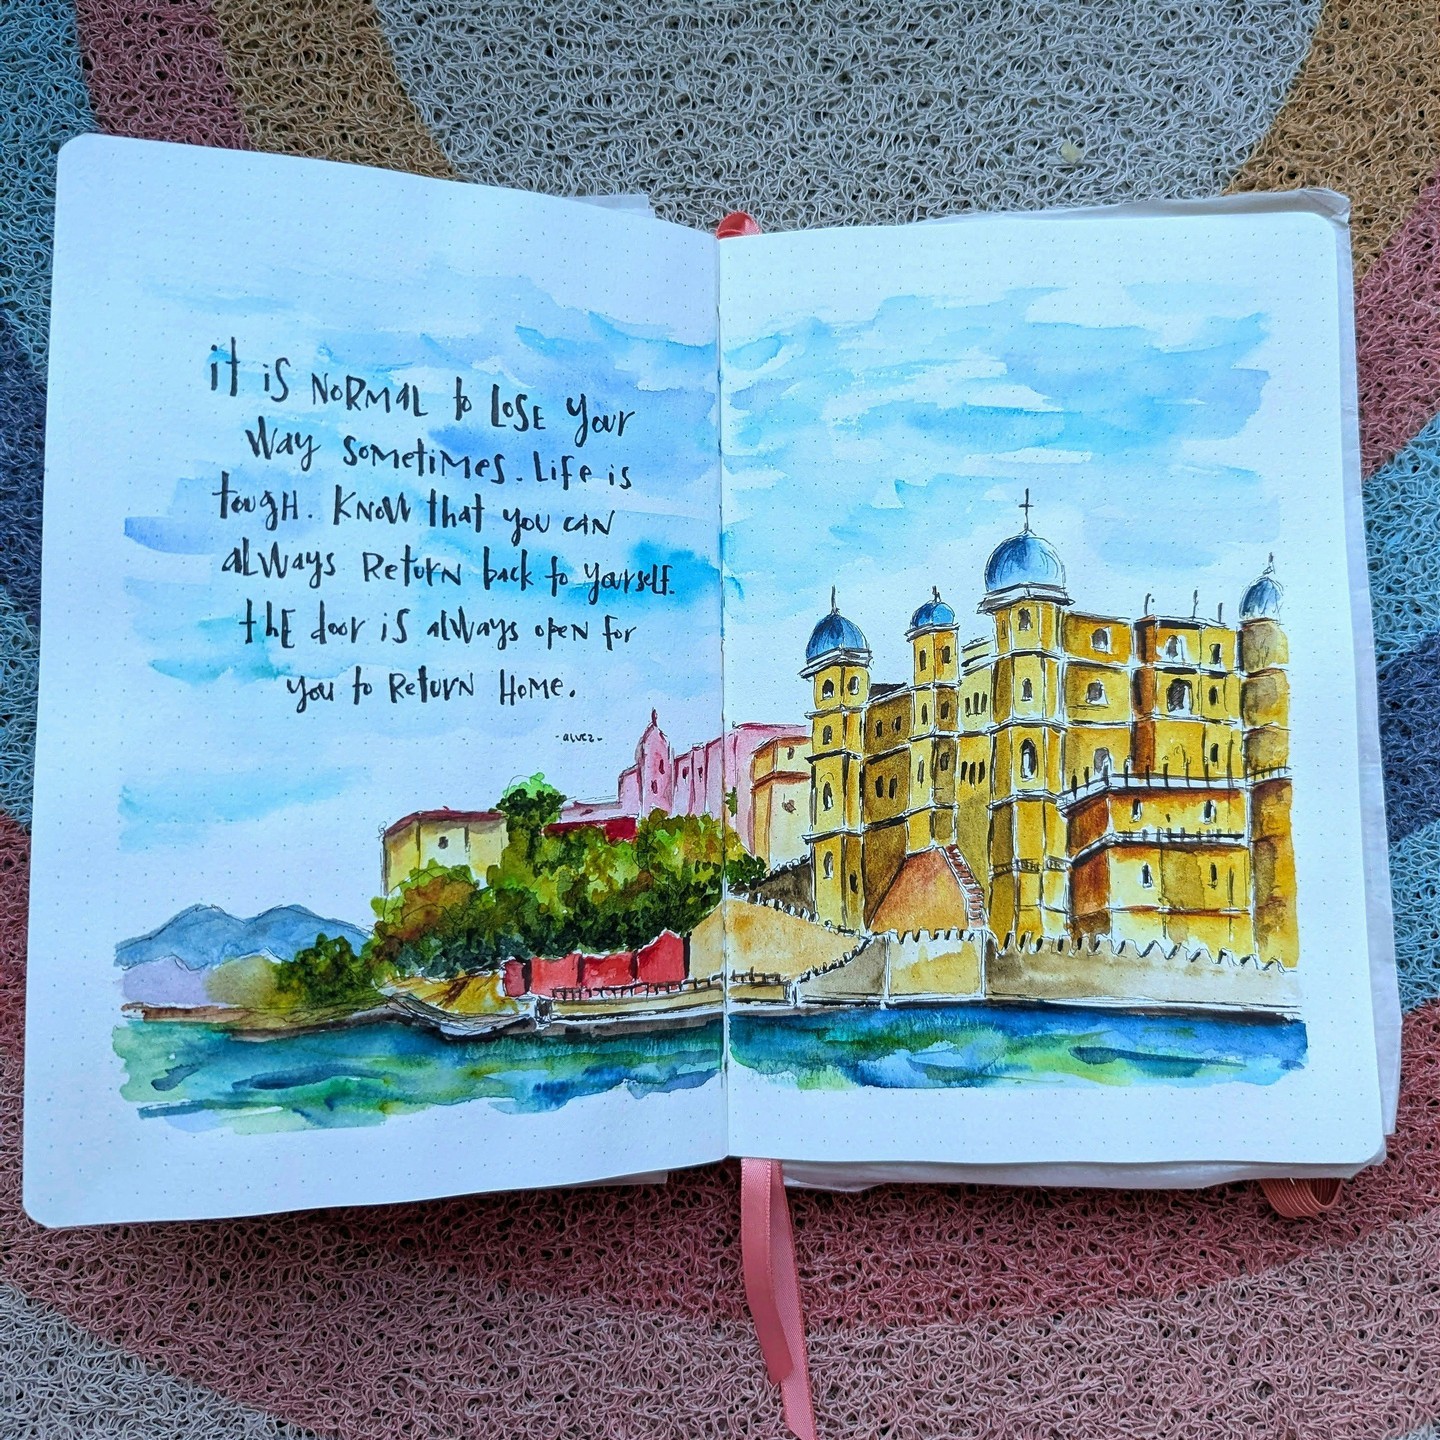 it is NORMAL to LOSE your
way sometimes. Life is
tough. Know that you can
always Return back to yourself.
the door is always open for
you to Return Home.
- alvez -